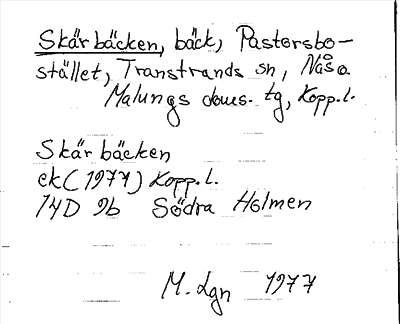 Skärbäcken, bäck, Pastorsbo-
stället, Transtrands sn, Nås o.
Malungs doms. tg, Kopp.l.
Skärbäcken
ek (1977) Kopp.l.
14D 9b Södra Holmen
M. Lgn 1977